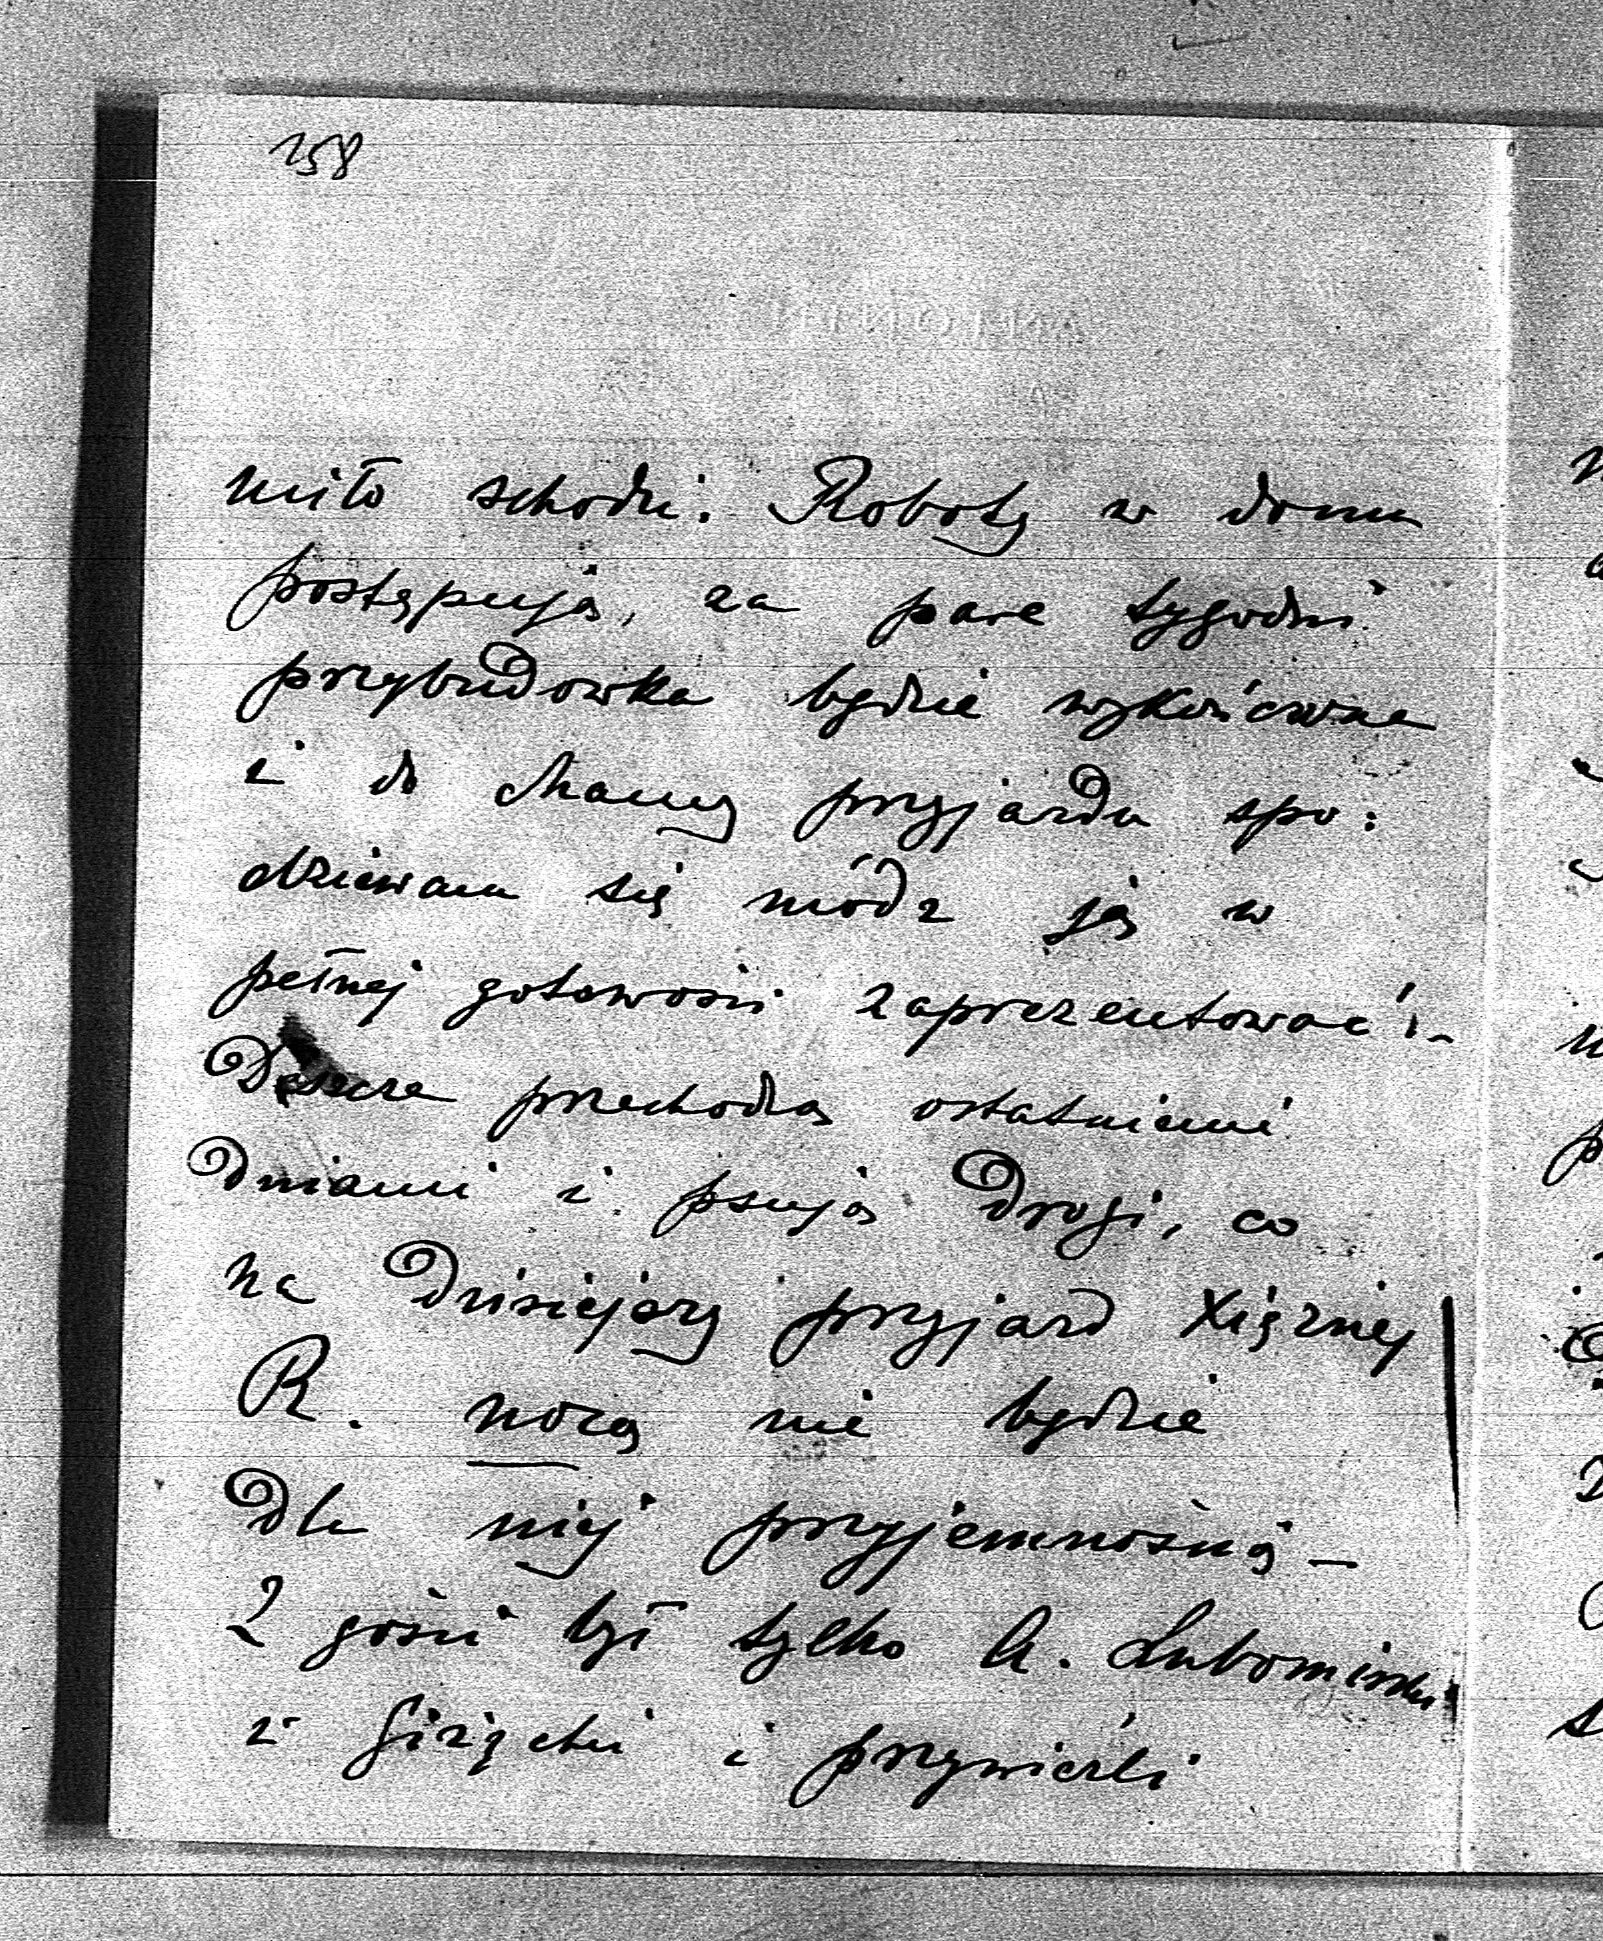 158
ANTONINY
miło schodzi. Roboty w domu
postępują, za pare tygodni
przybudowka będzie wykończona
i do Mamy przyjazdu spo:
dziewam się módz ją w
pełnej gotowości zaprezentować.–
Deszcze przechodzą ostatniemi
dniami i psują drogi, co
na dzisiejszy przyjazd Xiężnej
R. nocą nie będzie
dla niej przyjemnością –
Z gości był tylko A. Lubomirski
i Giżycki i przywieźli